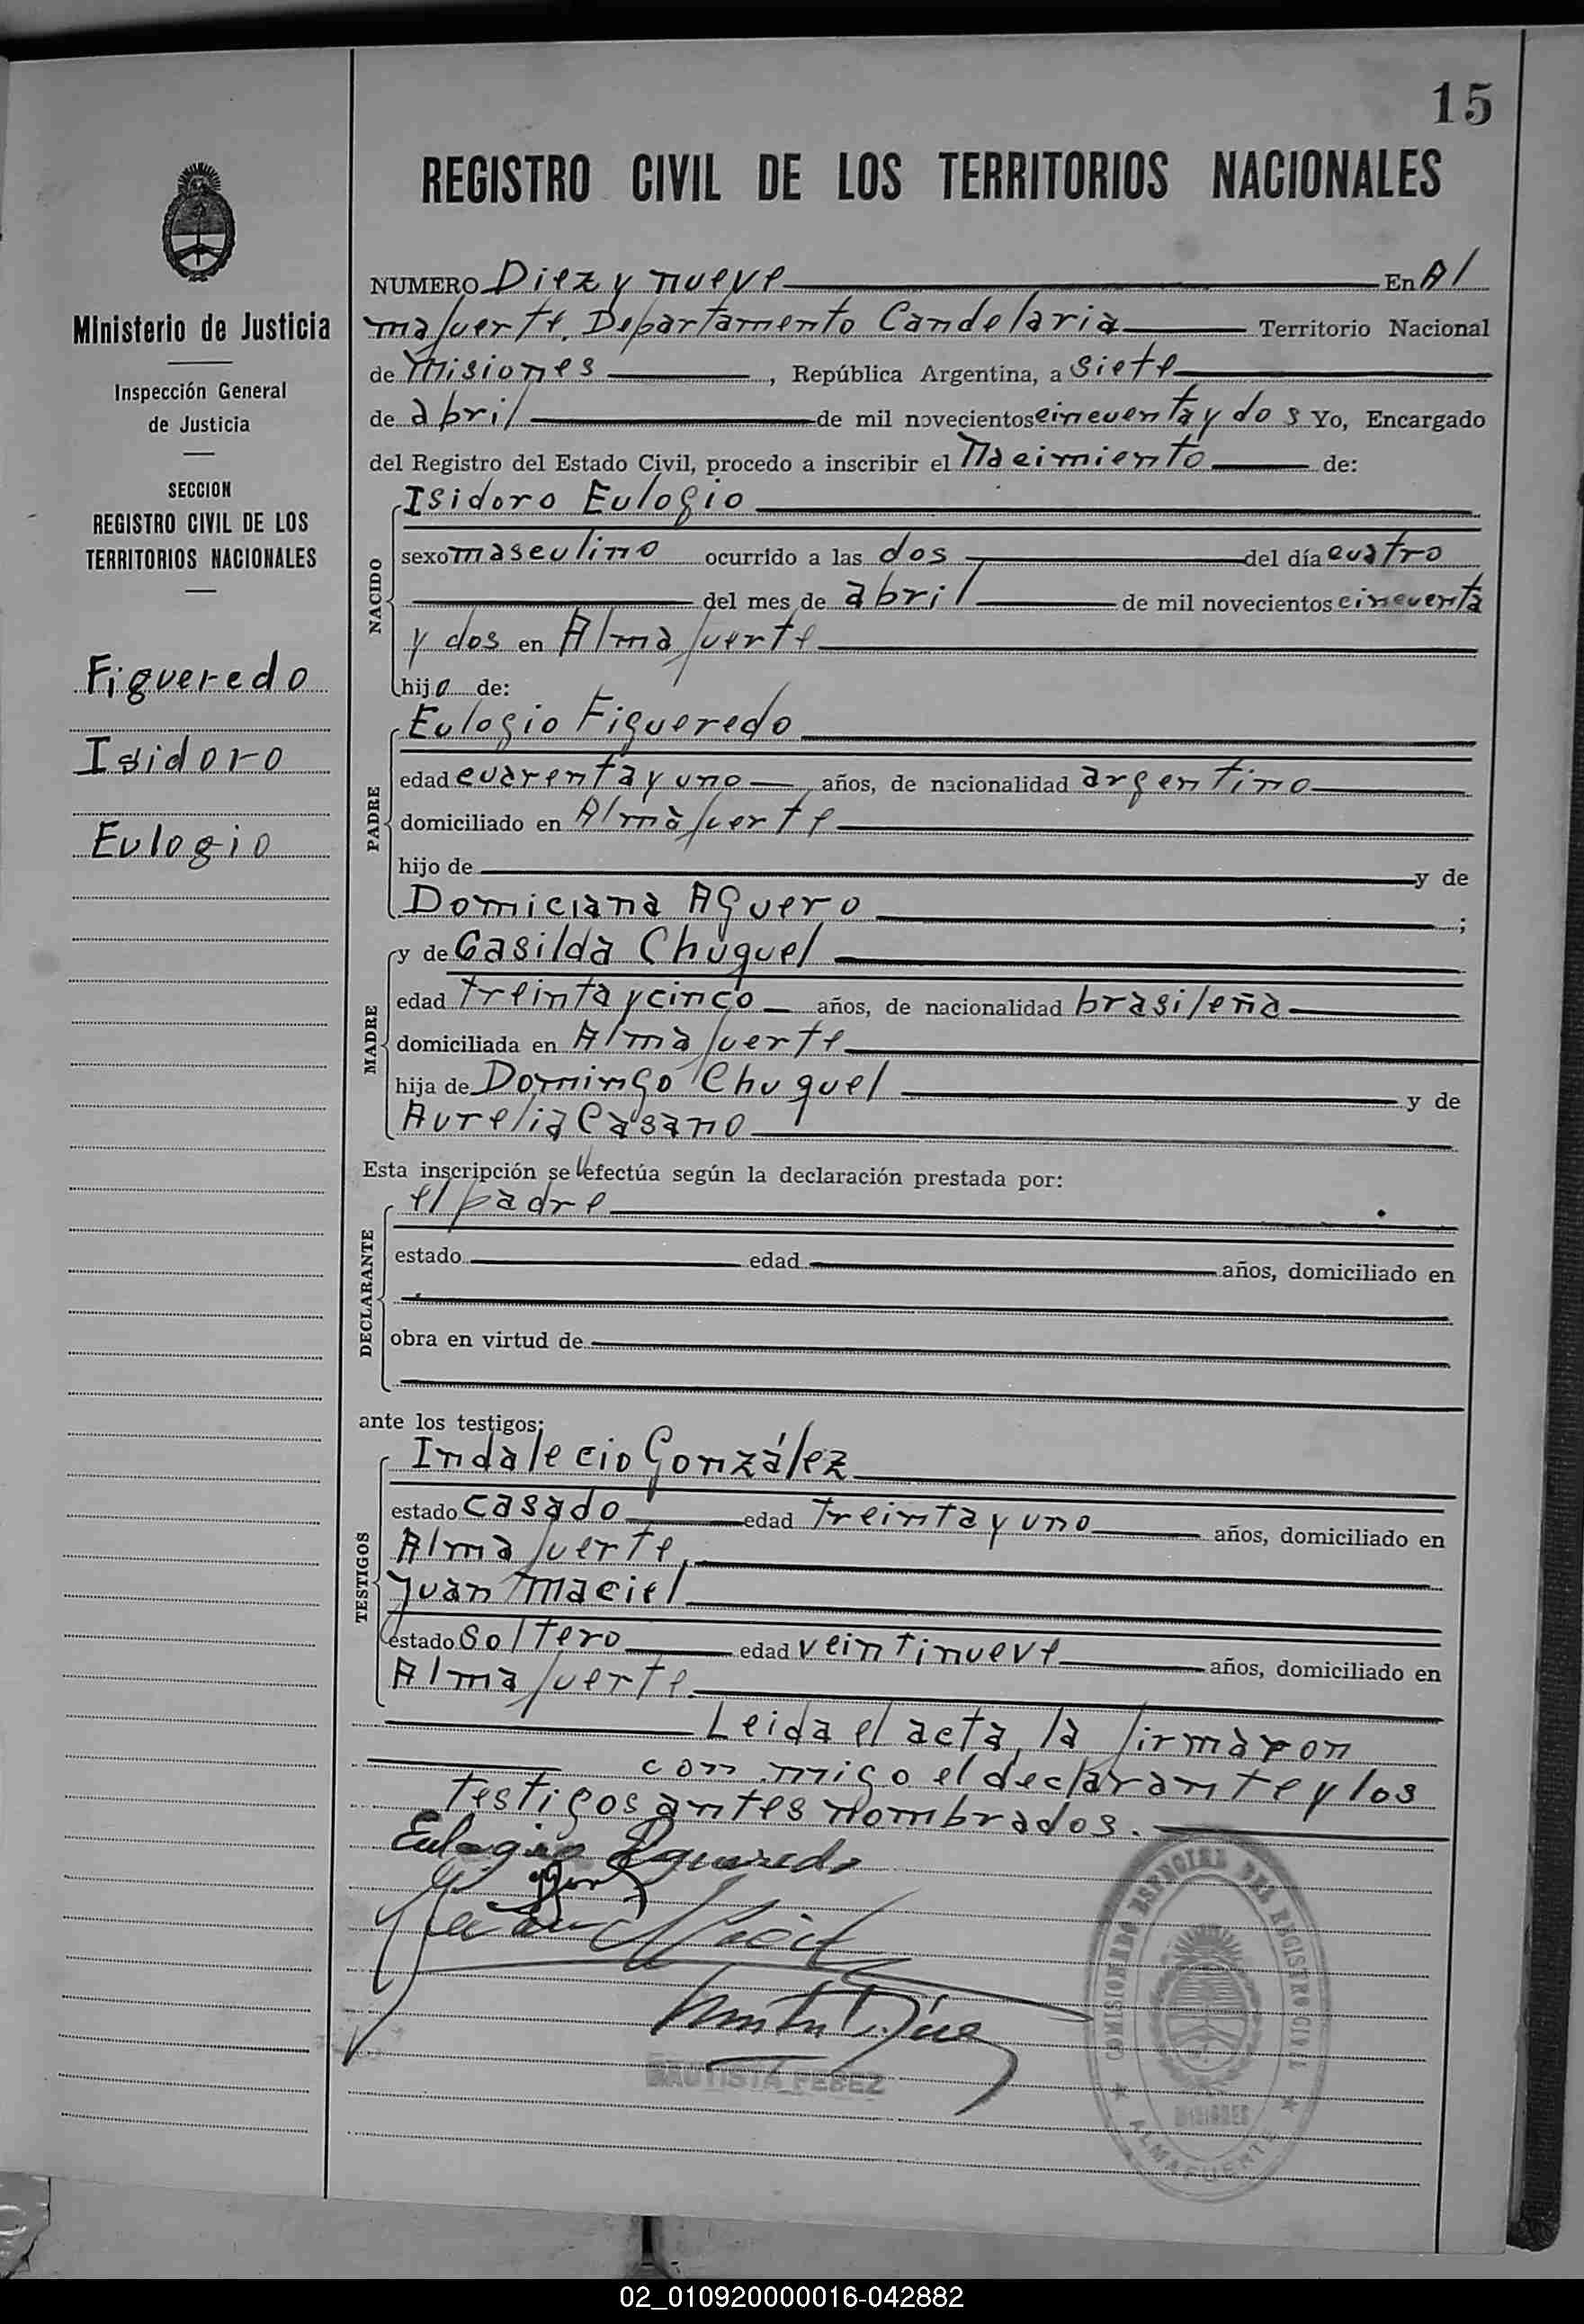 15
REGISTRO CIVIL DE LOS TERRITORIOS NACIONALES
Ministerio de Justicia
Inspección General
de Justicia
SECCION
REGISTRO CIVIL DE LOS
TERRITORIOS NACIONALES
Figueredo
Isidoro
Eulogio
NUMERO Diez y nueve En Al
mafuerte, Departamento Candelaria Territorio Nacional
de Misiones, República Argentina, a siete
de abril de mil novecientos cincuenta y dos Yo, Encargado
del Registro del Estado Civil, procedo a inscribir el Nacimiento de:
NACIDO
Isidoro Eulogio
sexo masculino ocurrido a las dos del día cuatro
del mes de abril de mil novecientos cincuenta
y dos en Almafuerte
hijo de:
PADRE
Eulogio Figueredo
edad cuarenta y uno años, de nacionalidad argentino
domiciliado en Almafuerte
hijo de y de
Domiciana Aguero ;
MADRE
y de Casilda Chuquel
edad treinta y cinco años, de nacionalidad brasileña
domiciliada en Almafuerte
hija de Domingo Chuquel y de
Aurelia Casano
Esta inscripción se efectúa según la declaración prestada por:
DECLARANTE
el padre
estado edad años, domiciliado en
obra en virtud de
ante los testigos:
TESTIGOS
Indalecio González
estado casado edad treinta y uno años, domiciliado en
Almafuerte,
Juan Maciel
estado soltero edad veintinueve años, domiciliado en
Almafuerte.
Leida el acta, la firmaron
con migo el declarante y los
testigos antes nombrados.
Eulogio Figueredo
BAUTISTA PEREZ
COMISIONADO ESPECIAL DEL REGISTRO CIVIL
MISIONES
ALMAFUERTE
02_010920000016-042882